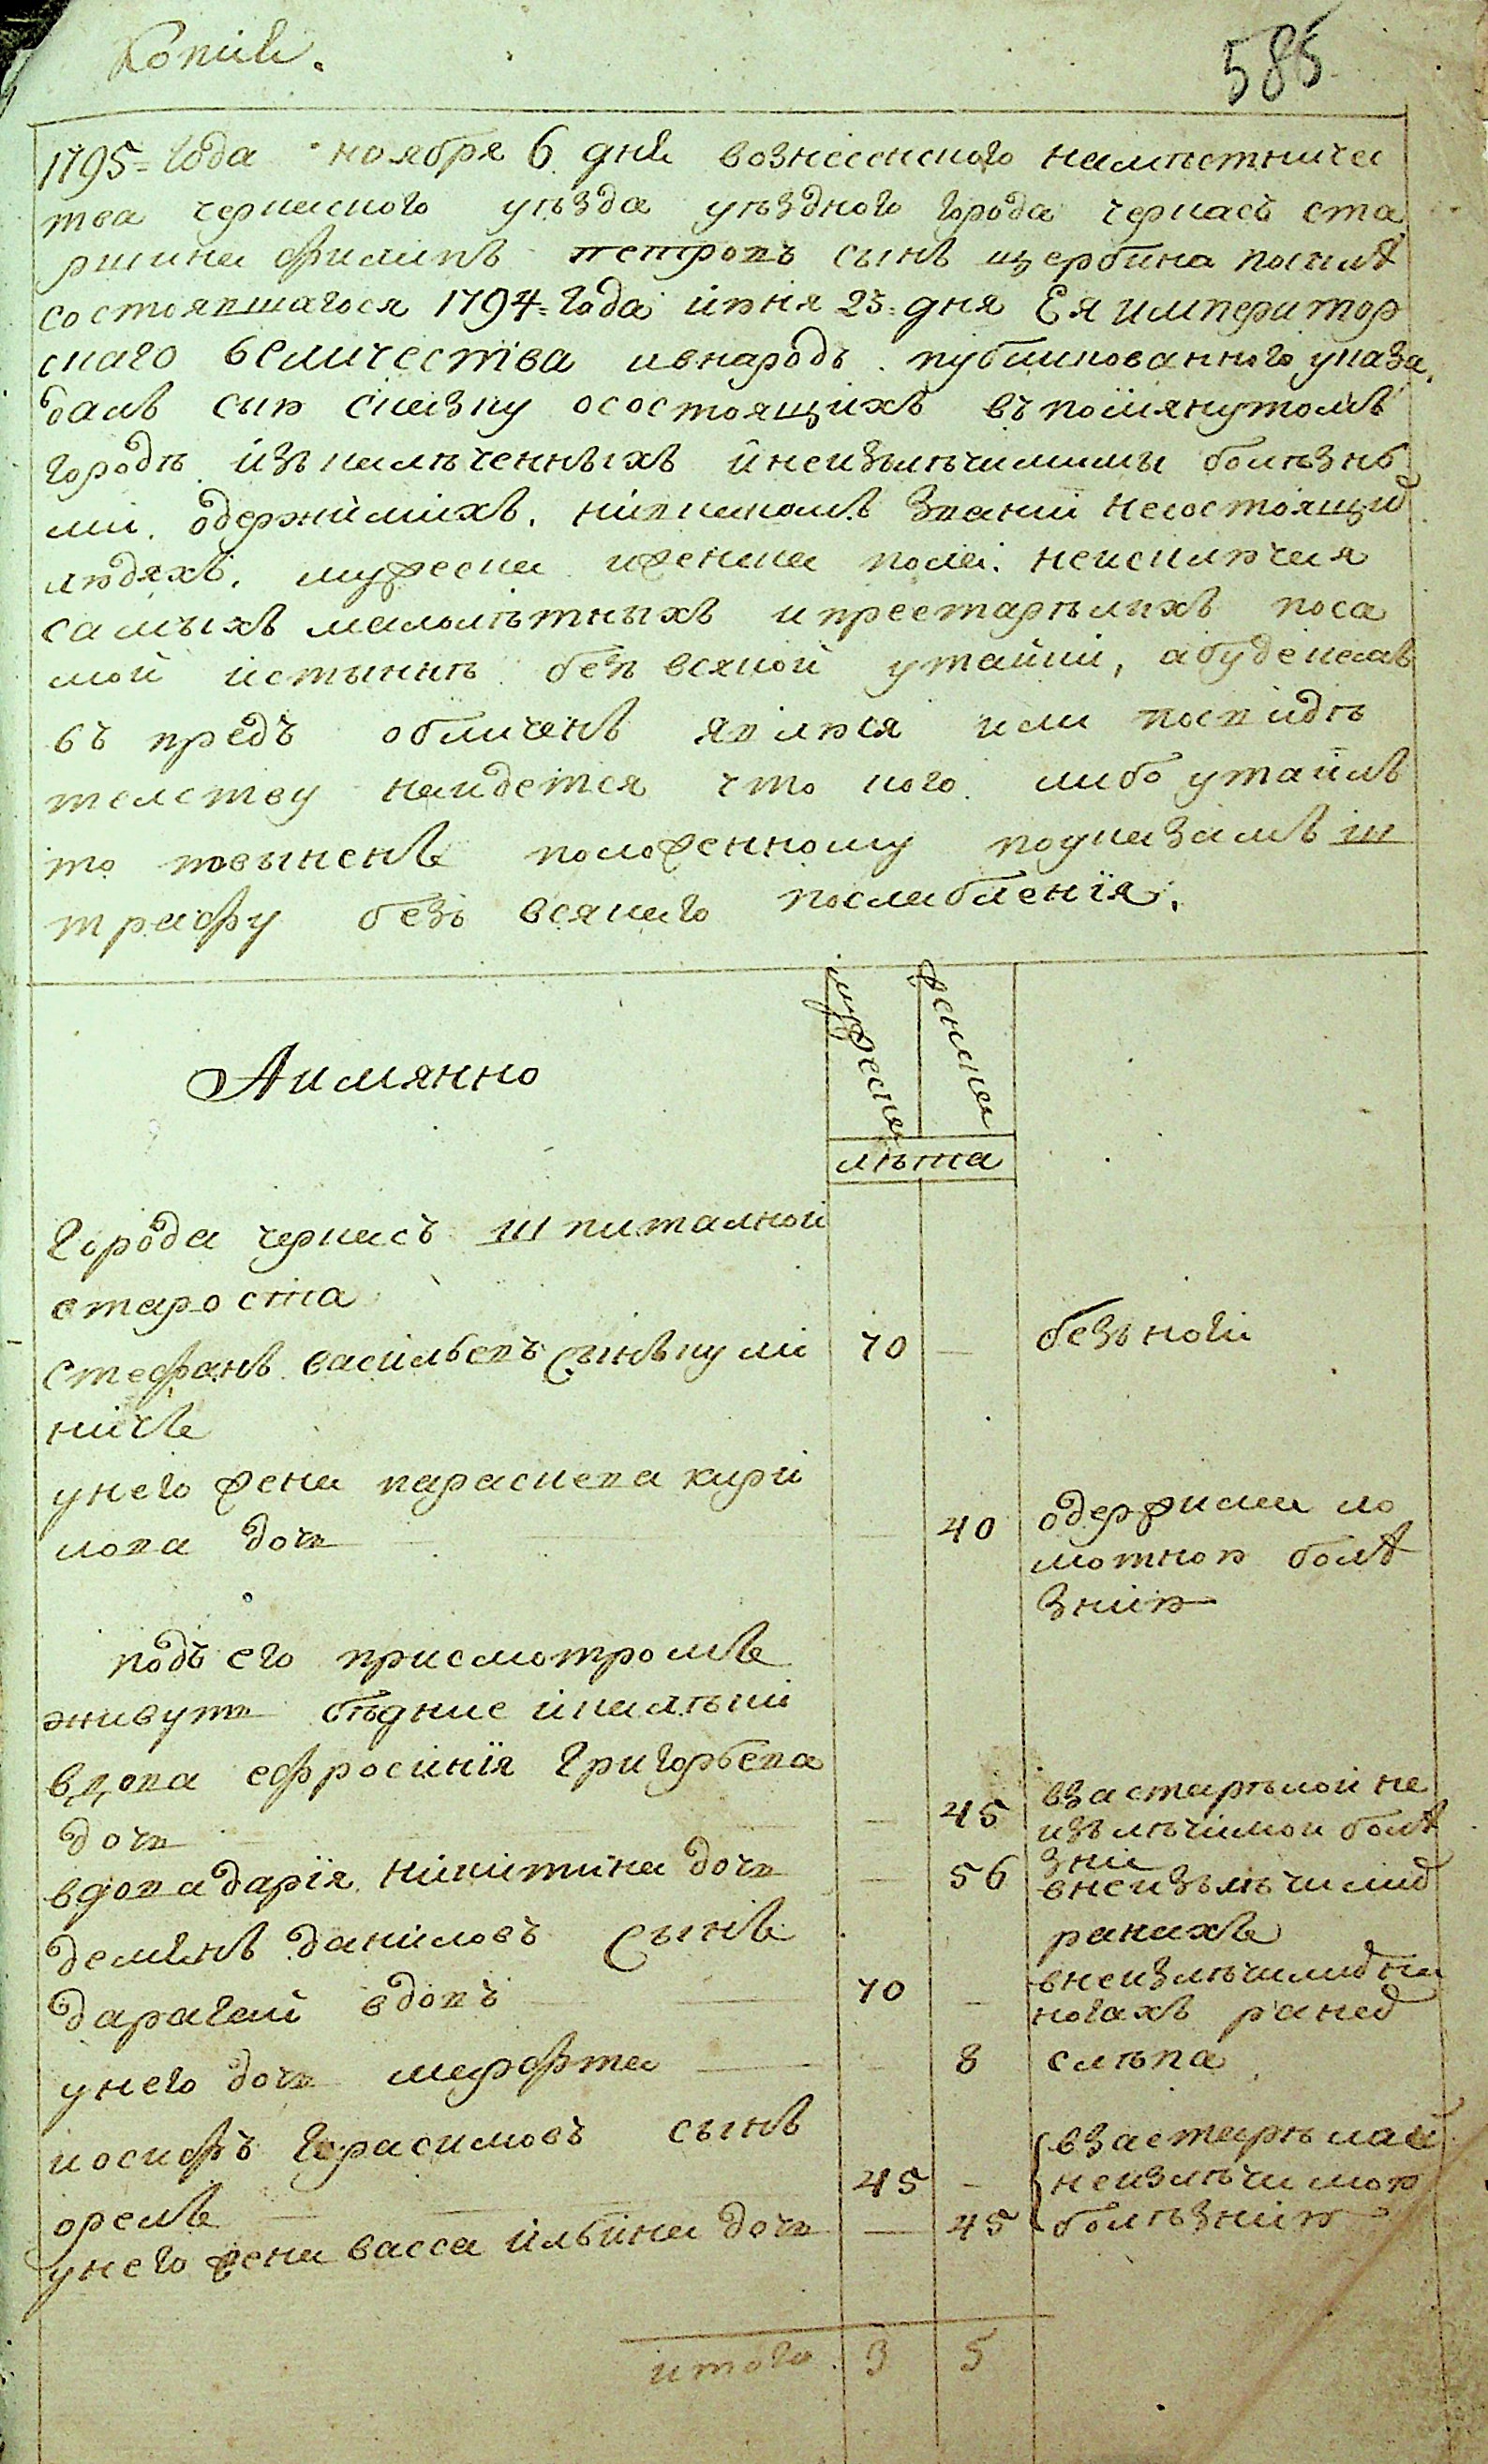 Копия.
585
1795= года ноября 6 дня вознесенского наместничес
тва черкаского уѣзда уѣздного города черкасъ ста
ршина филипъ петровъ сынъ щербина послѣ
состоявшагося 1794= года июня 23= дня Ея император
скаго величества ивнародъ публикованного указа,
далъ сию сказку осостоящихъ въ помянутомъ
городѣ изъкалѣченныхъ инеизълѣчимими болѣзнь
ми, одержимихъ, нивкакомъ звании несостоящих
людяхъ, мужеска иженска полеи, неисключая
самыхъ малолѣтныхъ ипрестарѣлихъ поса
мой истыннѣ безъ всякой утайки, абуде каковъ
въ предъ обличенъ явлюся или посвидѣ
телству найдется что кого либо утаилъ
то повыненъ положенному поуказамъ ш
трафу безъ всякаго послабленія.
мужеска
женска
Аимянно
лѣта
Города черкасъ шпиталной
староста
стефанъ васильевъ сынъ кули
ничъ 70 — безъ ноги
унего жена параскева кири
лова дочь — 40 одержима ло
мотною болѣ
знию
подъ его присмотромъ
живутъ бѣдние и калѣки
вдова ефросинія Григорьева
дочь — 45 взастарѣлой не
изълѣчимои болѣ
зни
вдова дарія никитина дочь — 56 внеизълѣчимих
ранахъ
демянъ даниловъ сынъ
дарагай вдовъ 70 — внеизлѣчимих на
ногахъ ранех
унего дочь марфта — 8 слѣпа
иосифъ герасимовъ сынъ
орелъ 45 — взастарѣлай
неизлѣчимою
унего жена васса ильина дочь — 45 болѣзнию
итого 3 5